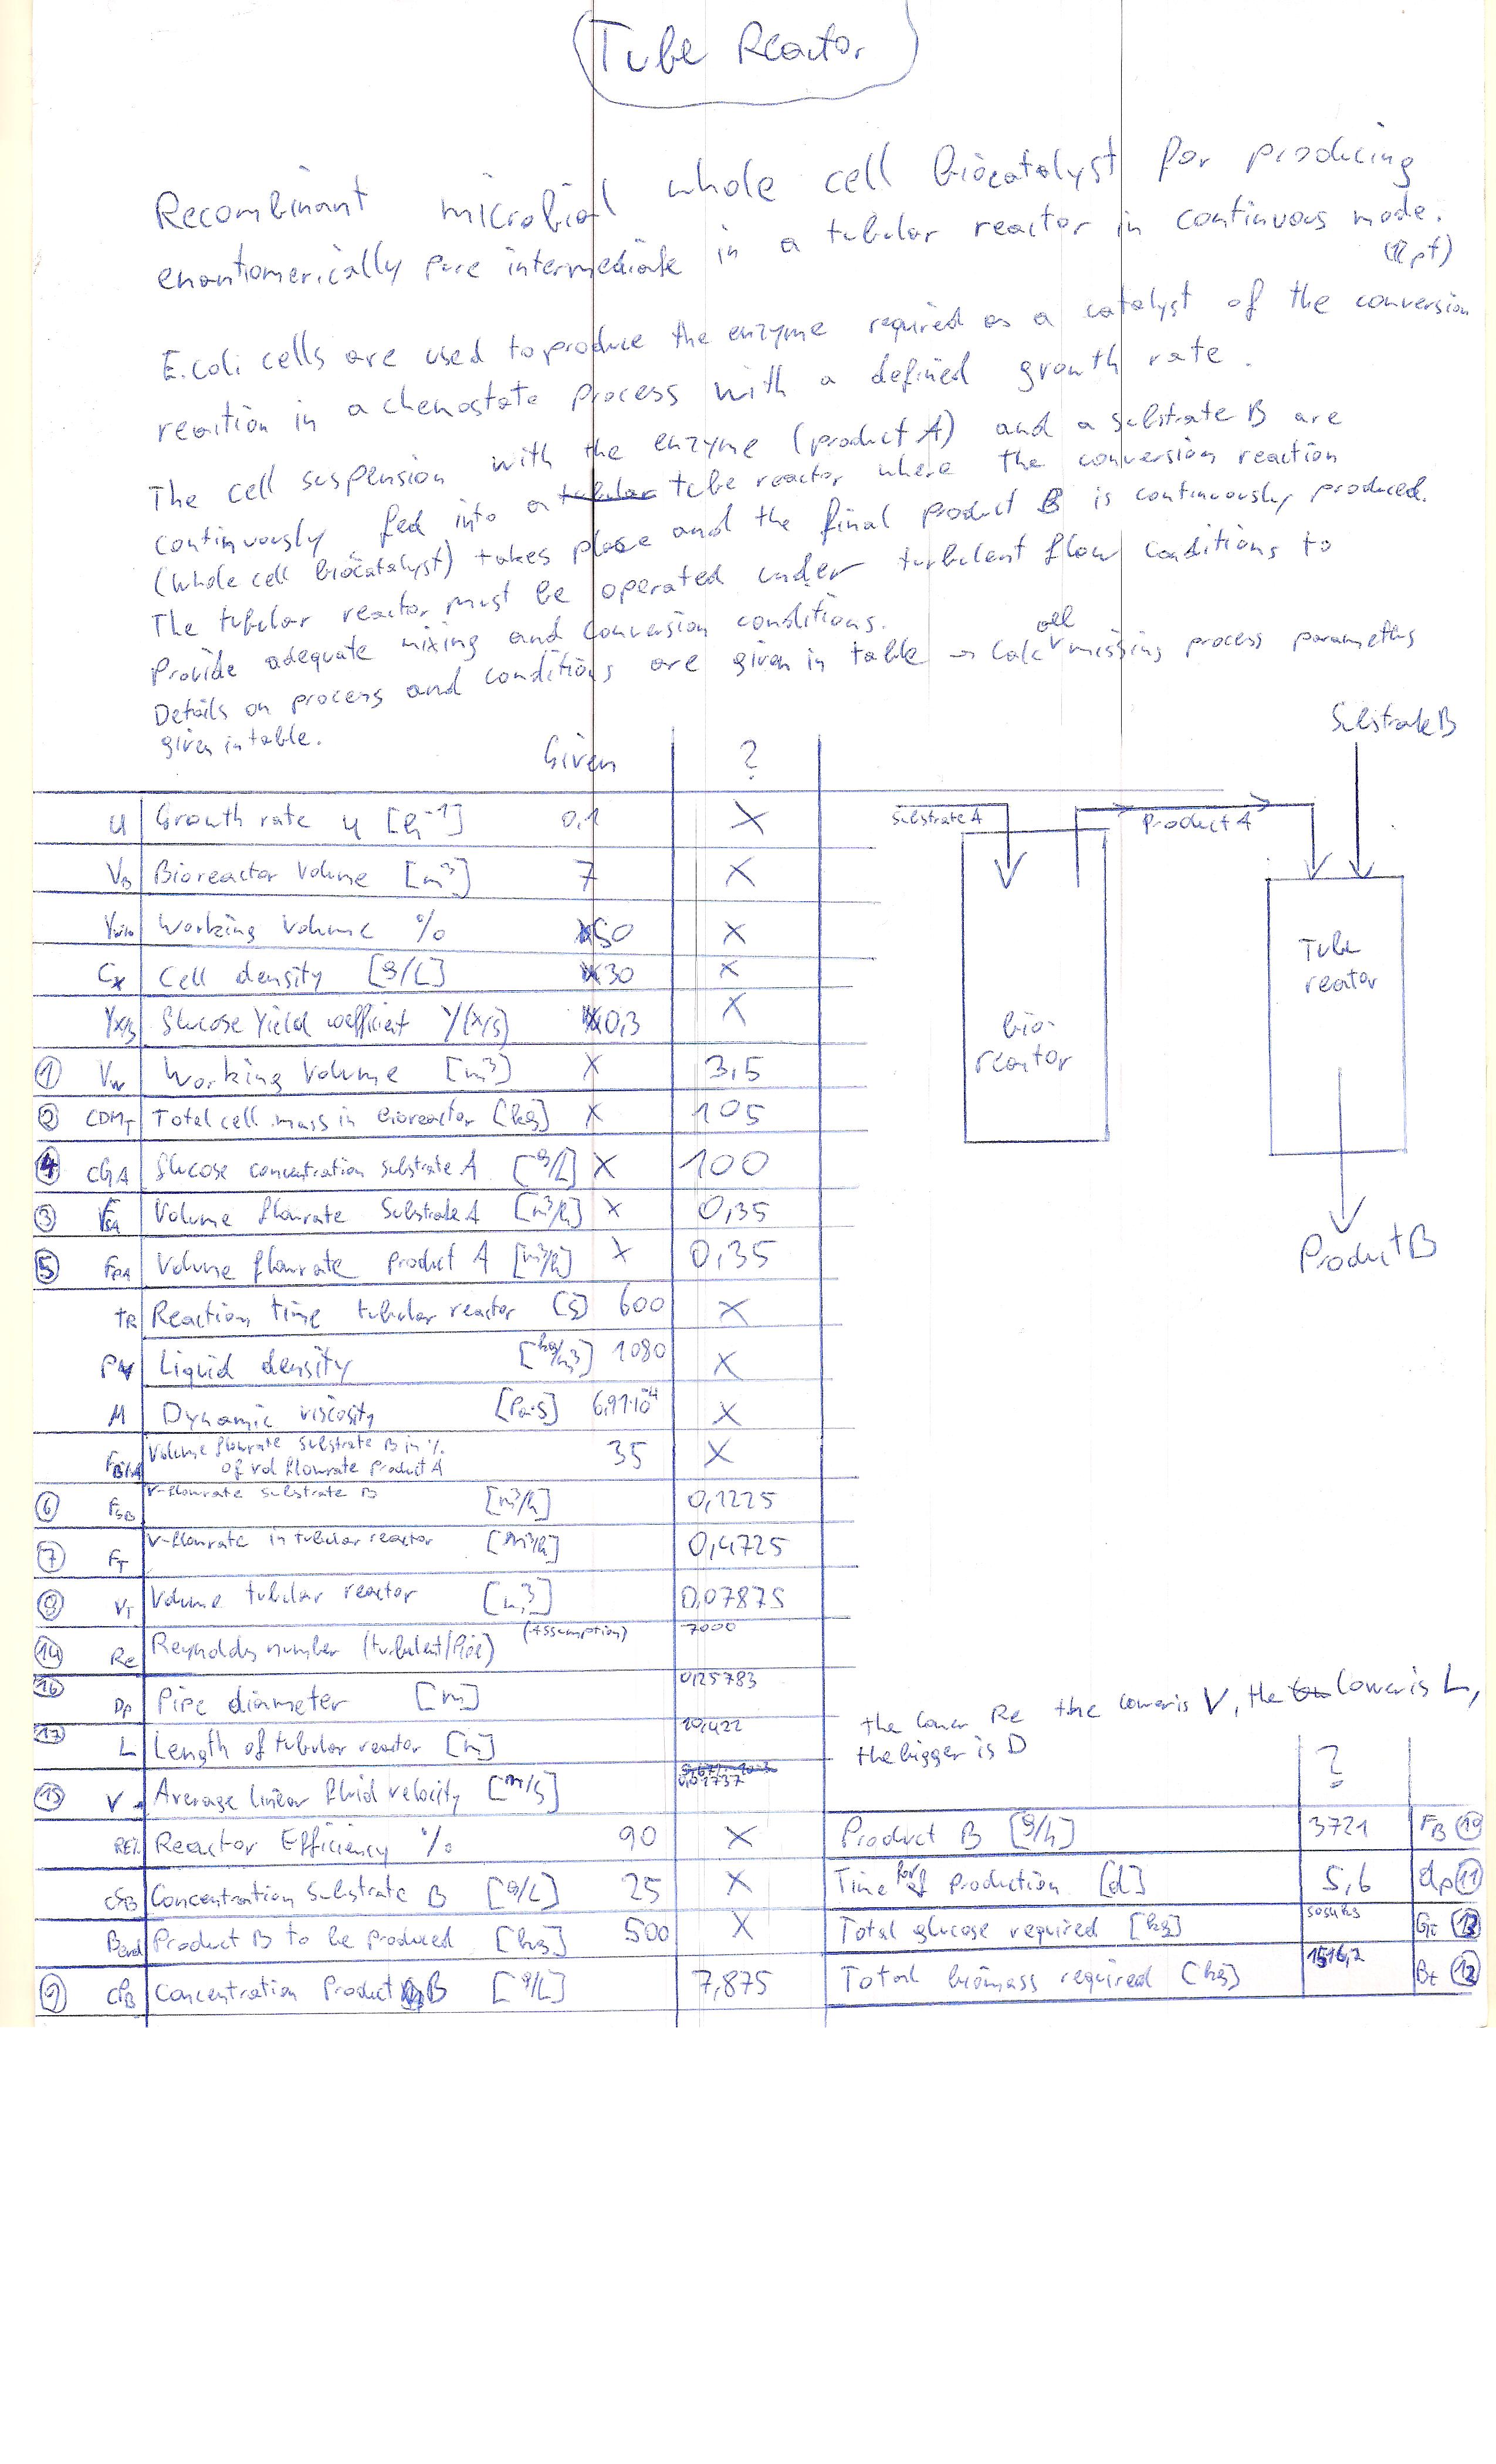 Tube Reactor
Recombinant microbial whole cell biocatalyst for producing
enantiomerically pure intermediate in a tubular reactor in continuous mode.
(12pt)
E.coli cells are used to produce the enzyme required as a catalyst of the conversion
reaction in a chemostate process with a defined growth rate.
The cell suspension with the enzyme (product A) and a substrate B are
continuously fed into a tubular tube reactor where the conversion reaction
(whole cell biocatalyst) takes place and the final product B is continuously produced.
The tubular reactor must be operated under turbulent flow conditions to
Provide adequate mixing and conversion conditions.
Details on process and conditions are given in table → Calc all missing process parameters
given in table.
Substrate B
Given ?
μ Growth rate μ [h⁻¹] 0,1 X
Substrate A
Product A
VB Bioreactor Volume [m³] 7 X
Working Volume % 50 X
Tube
reator
Cx Cell density [g/L] 30 X
Yx/s Glucose Yield coefficient Y(x/s) 0,3 X
bio-
reactor
① Vw Working Volume [m³] X 3,5
② CDMT Total cell mass in bioreactor [kg] X 105
④ CGA Glucose concentration substrate A [g/L] X 100
③ FSA Volume flowrate Substrate A [m³/h] X 0,35
⑤ FPA Volume flowrate product A [m³/h] X 0,35
Product B
tR Reaction time tubular reactor [s] 600 X
Liquid density [kg/m³] 1080 X
M Dynamic viscosity [Pa·s] 6,91·10⁻⁴ X
Volume flowrate substrate B in %
of vol flowrate product A 35 X
⑥ FSB V-flowrate substrate B [m³/h] 0,1225
⑦ FT V-flowrate in tubular reactor [m³/h] 0,4725
⑧ VT Volume tubular reactor [m³] 0,07875
⑭ Re Reynolds number (turbulent/Pipe) (Assumption) 7000
⑯ Dp Pipe diameter [m] 0,25783
the lower Re the lower is V, the lower is L,
the bigger is D
⑰ L Length of tubular reactor [m]
⑮ V Average linear fluid velocity [m/s] 0,01737
?
RE% Reactor Efficiency % 90 X
Product B [g/h] 3721 FB ⑩
CSB Concentration Substrate B [g/L] 25 X
Time for of production [d] 5,6 dp ⑪
Bend Product B to be produced [kg] 500 X
Total glucose required [kg] 5054 kg Gt ⑬
⑨ CPB Concentration Product B [g/L] 7,875
Total biomass required [kg] 1516,2 Bt ⑫